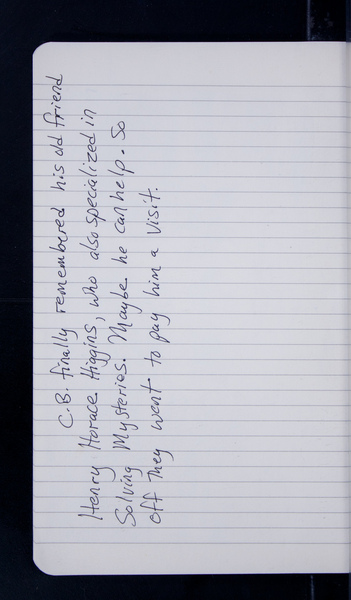 C.B. finally remembered his old friend
Henry Horace Higgins, who also specialized in
Solving Mysteries. Maybe he can help. So
off they went to pay him a visit.